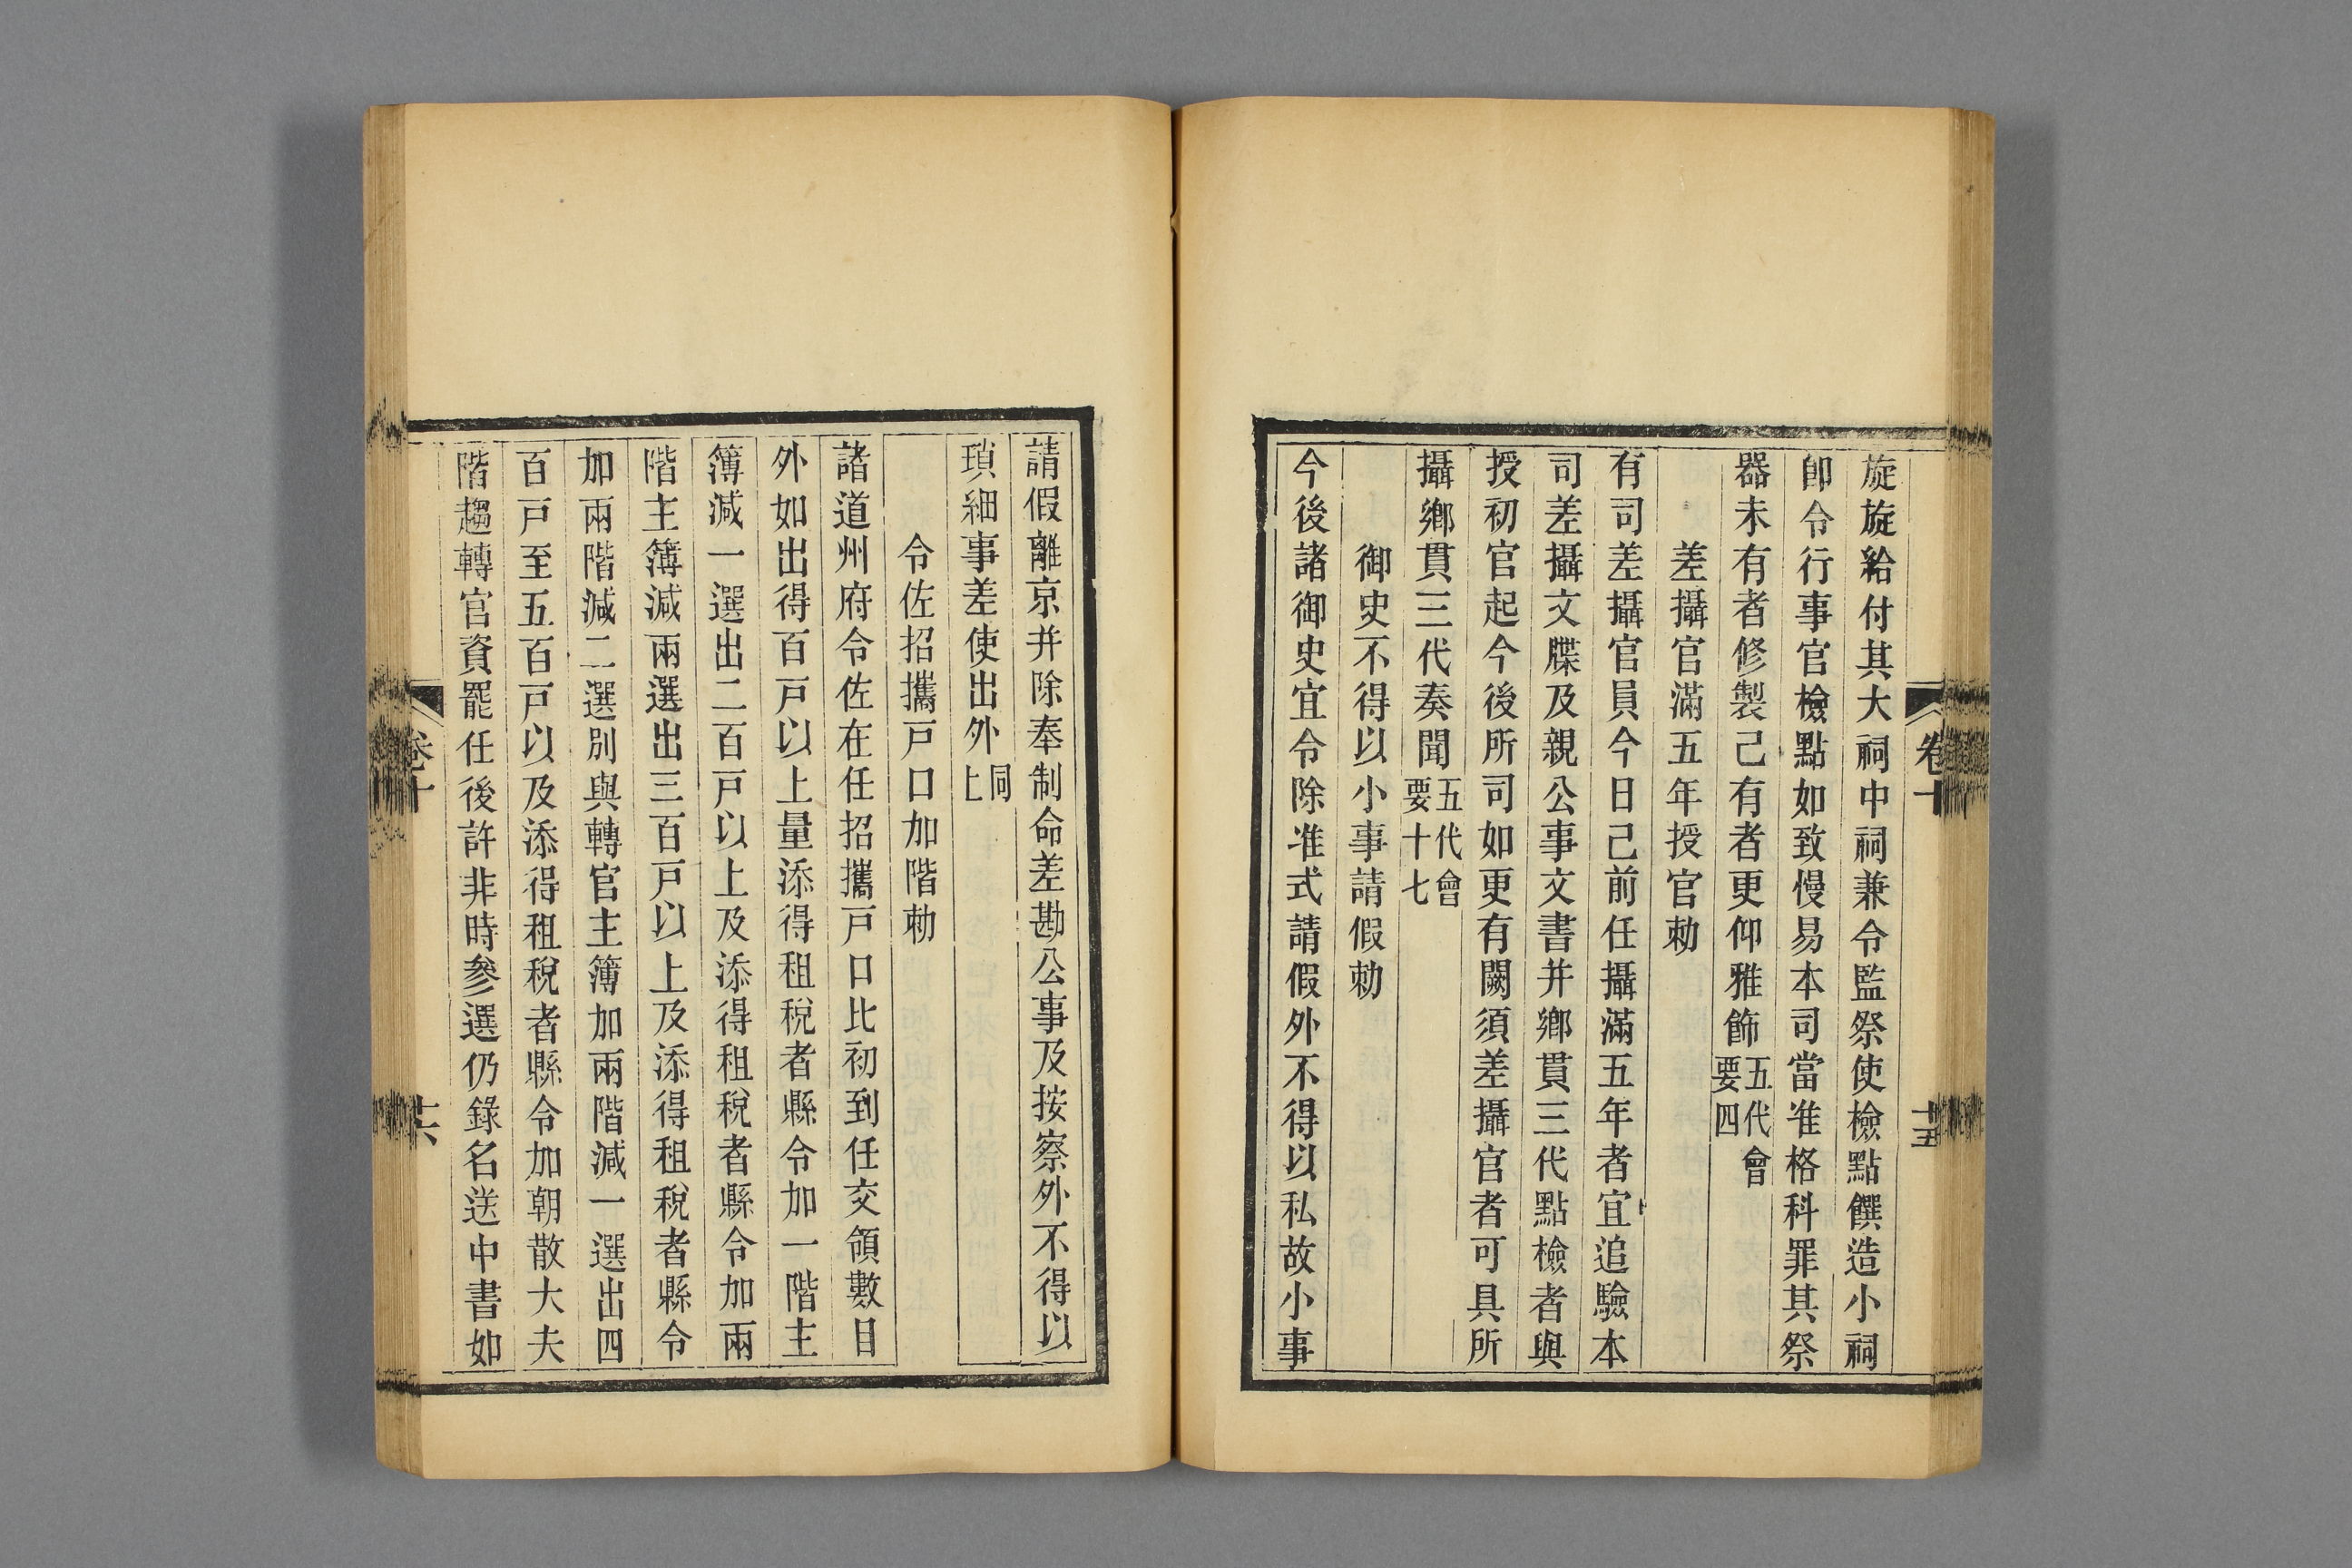 旋旋給付其大祠中祠兼令監祭使檢點饌造小祠
卽令行事官檢點如致慢易本司當准格科罪其祭
器未有者修製己有者更仰雅飾五代會要四
差攝官滿五年授官勅
有司差攝官員今日己前任攝滿五年者宜追驗本
司差攝文牒及親公事文書并鄉貫三代點檢者與
授初官起今後所司如更有闕須差攝官者可具所
攝鄉貫三代奏聞五代會要十七
御史不得以小事請假勅
今後諸御史宜令除准式請假外不得以私故小事
卷十
十五
請假離京并除奉制命差勘公事及按察外不得以
瑣細事差使出外同上
令佐招攜戸口加階勅
諸道州府令佐在任招攜戸口比初到任交領數目
外如出得百戸以上量添得租稅者縣令加一階主
簿減一選出二百戸以上及添得租稅者縣令加兩
階主簿減兩選出三百戸以上及添得租稅者縣令
加兩階減二選別與轉官主簿加兩階減一選出四
百戸至五百戸以及添得租稅者縣令加朝散大夫
階超轉官資罷任後許非時參選仍錄名送中書如
卷十
十六